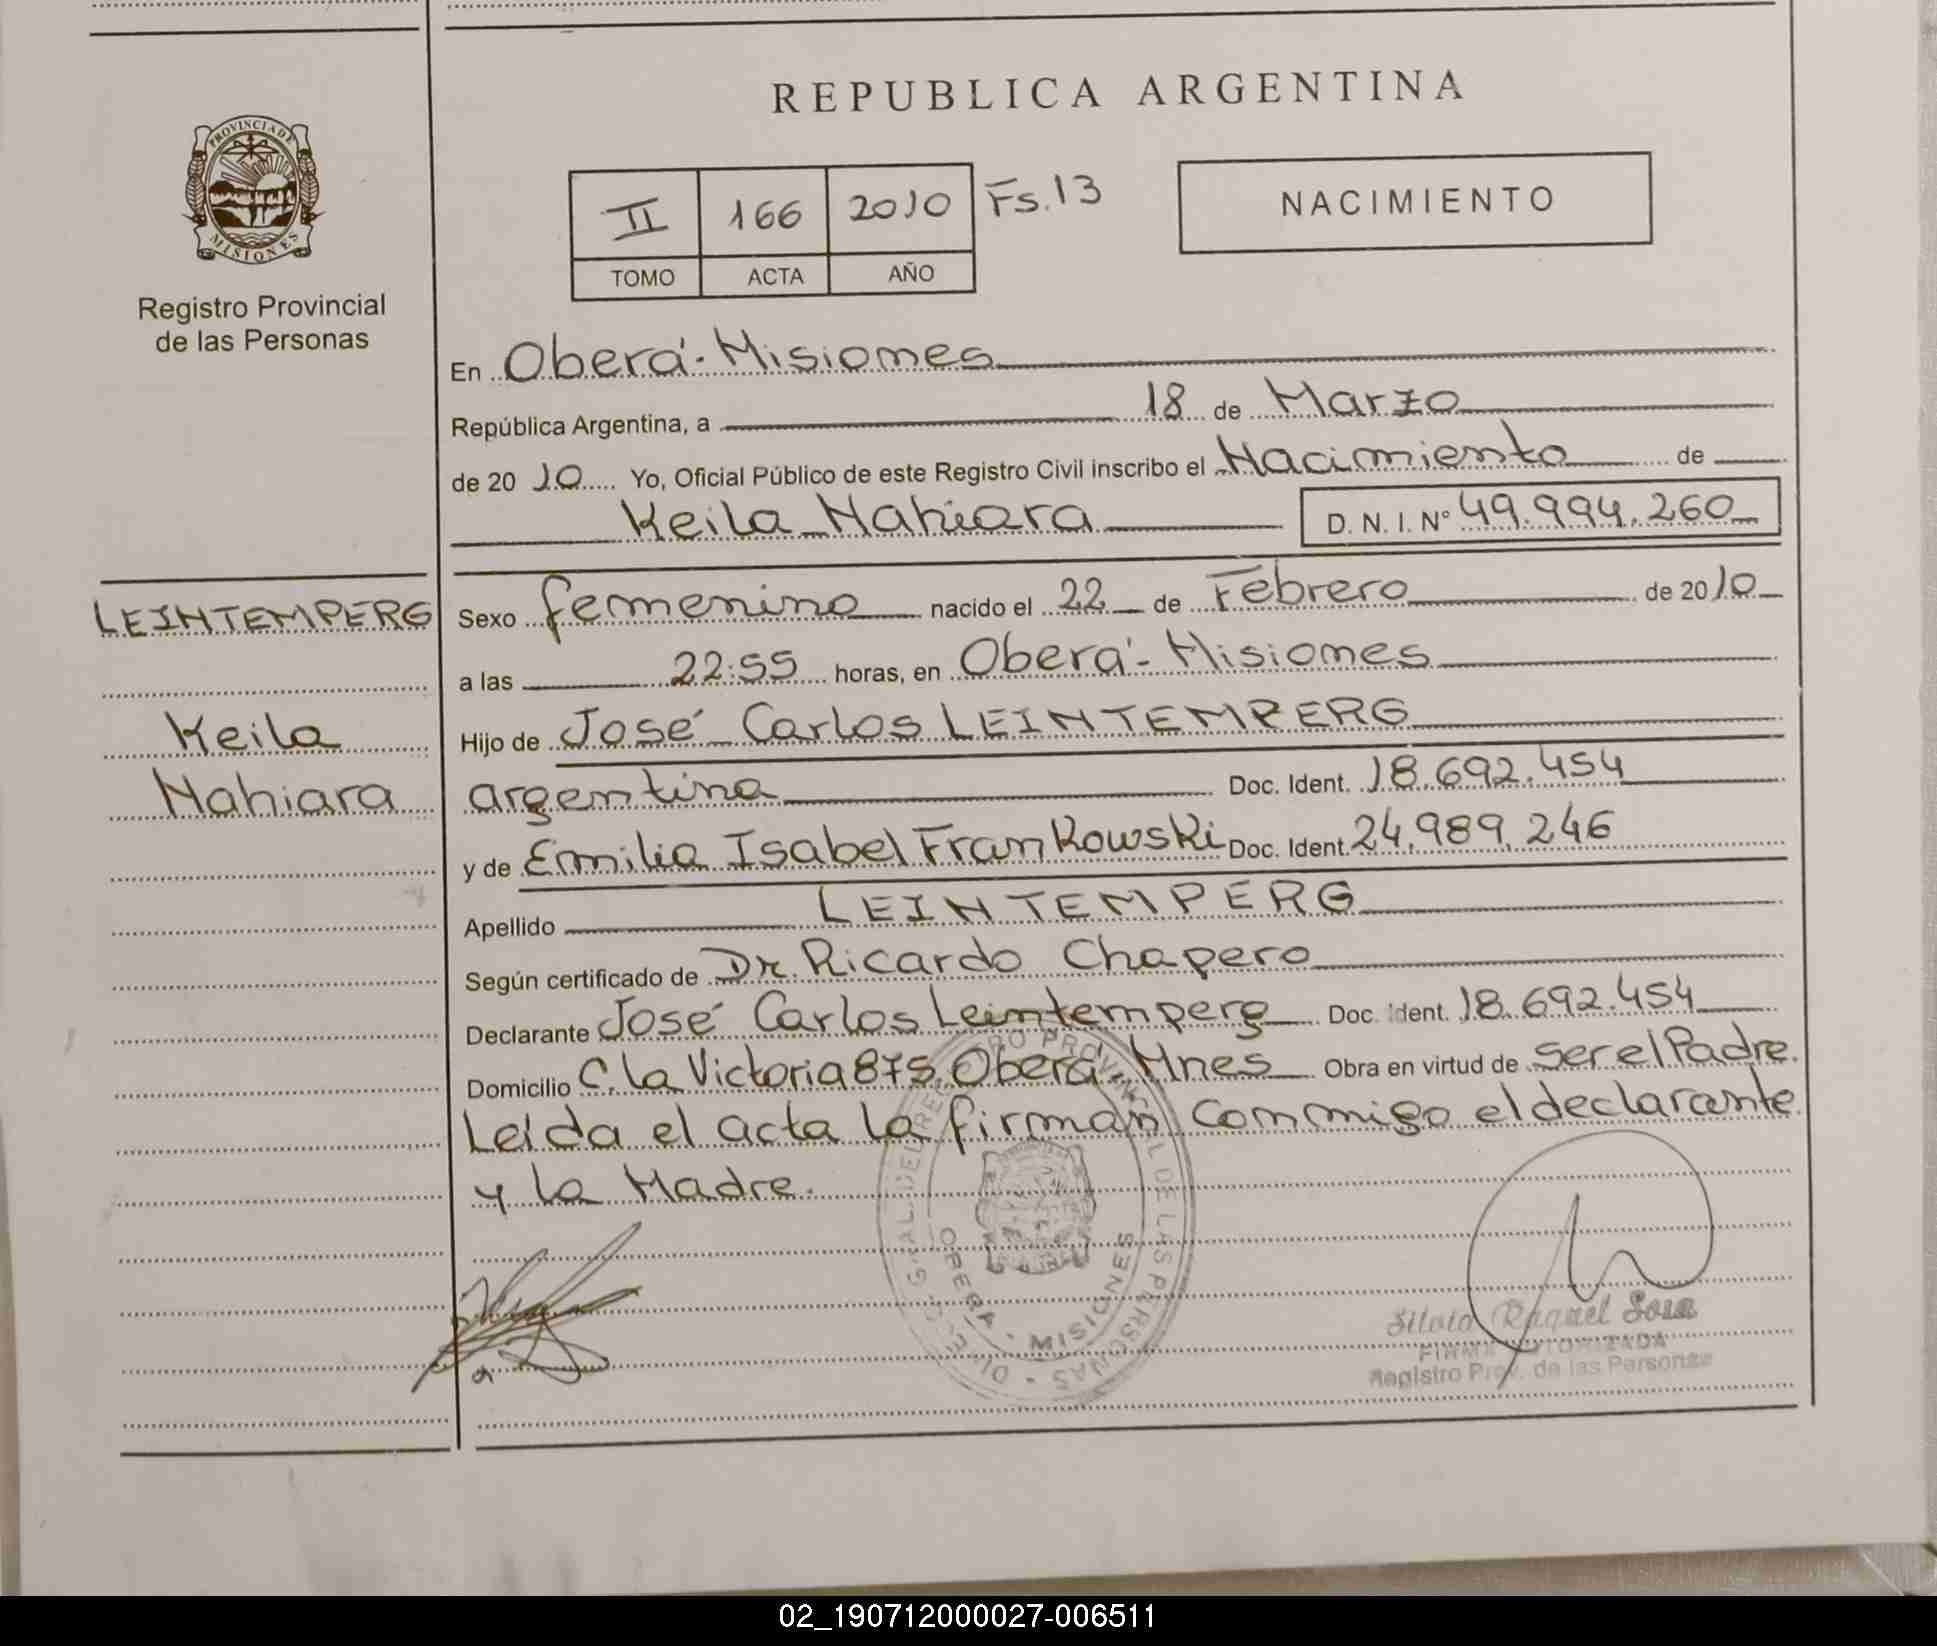 REPUBLICA ARGENTINA
PROVINCIA DE
MISIONES
Registro Provincial
de las Personas
II 166 2010 Fs.13
TOMO ACTA AÑO
NACIMIENTO
En Oberá-Misiones
República Argentina, a 18 de Marzo
de 20 10 Yo, Oficial Público de este Registro Civil inscribo el Nacimiento de
Keila Nahiara D. N. I. Nº 49.994.260
LEINTEMPERG
Keila
Nahiara
Sexo femenino nacido el 22 de Febrero de 20 10
a las 22:55 horas, en Oberá-Misiones
Hijo de José Carlos LEINTEMPERG
argentina Doc. Ident. 18.692.454
y de Emilia Isabel Frankowski Doc. Ident. 24.989.246
Apellido LEINTEMPERG
Según certificado de Dr. Ricardo Chapero
Declarante José Carlos Leintemperg Doc. Ident. 18.692.454
Domicilio C. La Victoria 875 Oberá-Mnes Obra en virtud de ser el Padre.
Leída el acta la firman conmigo el declarante
y la Madre.
REGISTRO PROVINCIAL DE LAS PERSONAS
OBERA - MISIONES
Raquel Sosa
FIRMA AUTORIZADA
Registro Prov. de las Personas
02_190712000027-006511